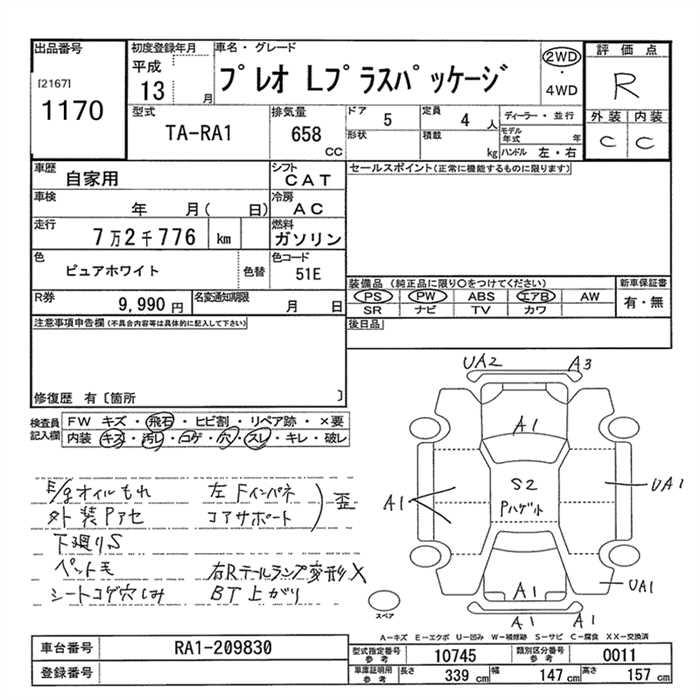 出品番号
[2167]
1170
初度登録年月
平成
13 月
車名・グレード
プレオ Lプラスパッケージ
2WD
・
4WD
評価点
R
外装 内装
C C
型式
TA-RA1
排気量
658 CC
ドア 5
形状
定員 4 人
積載 kg
ディーラー・並行
モデル年式 年
ハンドル 左・右
車歴
自家用
シフト
CAT
セールスポイント(正常に機能するものに限ります)
車検
年 月( 日)
冷房
AC
走行
7万2千776 km
燃料
ガソリン
色
ピュアホワイト
色替
色コード
51E
装備品(純正品に限り○をつけてください)
PS PW ABS エアB AW
SR ナビ TV カワ
新車保証書
有・無
R券
9,990円
名変通知期限
月 日
後日品
注意事項申告欄(不具合内容等は具体的に記入して下さい)
修復歴 有〔箇所 〕
検査員記入欄
FW キズ・飛石・ヒビ割・リペア跡・×要
内装・キズ・汚レ・コゲ・穴・スレ・キレ・破レ
E/gオイルもれ 左Fインパネ
外装Pアセ コアサポート 歪
下廻りS
ペット毛 右Rテールランプ変形X
シートコゲ穴しみ BT上がり
UA2 A3
A1
S2
Pハゲ
A1
UA1
UA1
A1
A1 A1
スペア
A-キズ E-エクボ U-凹み W-補修跡 S-サビ C-腐食 XX-交換済
車台番号 RA1-209830
登録番号
型式指定番号参考 10745
類別区分番号参考 0011
車庫証明用参考 長さ 339 cm 幅 147 cm 高さ 157 cm